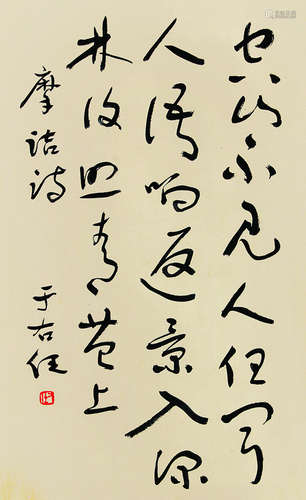 空山不见人但闻
人语响返景入深
林復照青苔上
摩诘诗
于右任